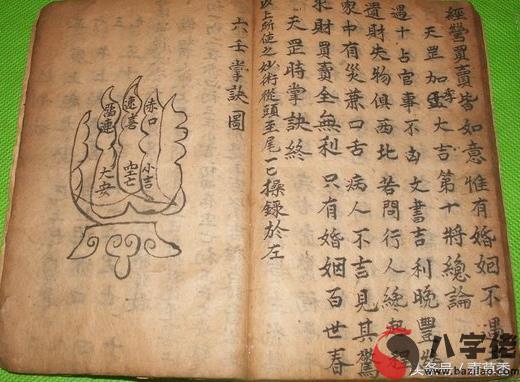 經營買賣皆如意惟有婚姻不
天罡加 大吉第十將總論
遇十占官事不 文書吉利晚豐收
遺財失物俱西北若問行人總起程
家中有災蕭口舌病人不吉見其驚
求財買賣全無利只有婚姻百世春
天罡時掌訣終
以上所使之妙術從頭至尾一乙操錄於左
六壬掌訣圖
赤口
速喜
留連
小吉
空亡
大安
八字
www.bazilao.com